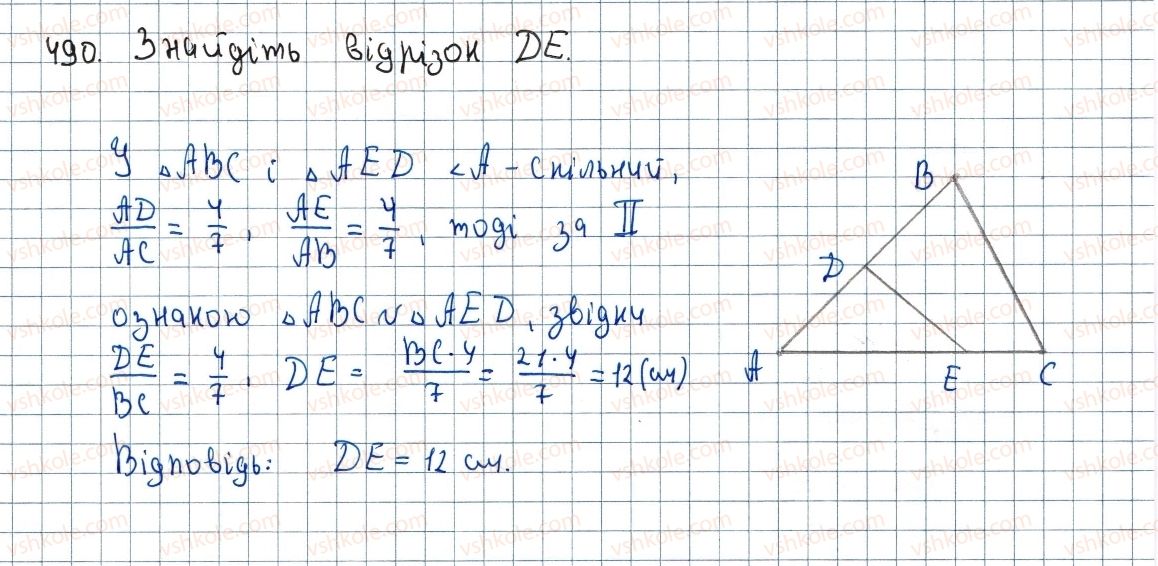 490. Знайдіть відрізок DE.
У △ABC і △AED <A - спільний,
AD/AC = 4/7, AE/AB = 4/7, тоді за II
ознакою △ABC ∾ △AED, звідки
DE/BC = 4/7, DE = BC·4/7 = 21·4/7 = 12 (см)
Відповідь: DE = 12 см.
B
D
A
E
C
vshkole.com